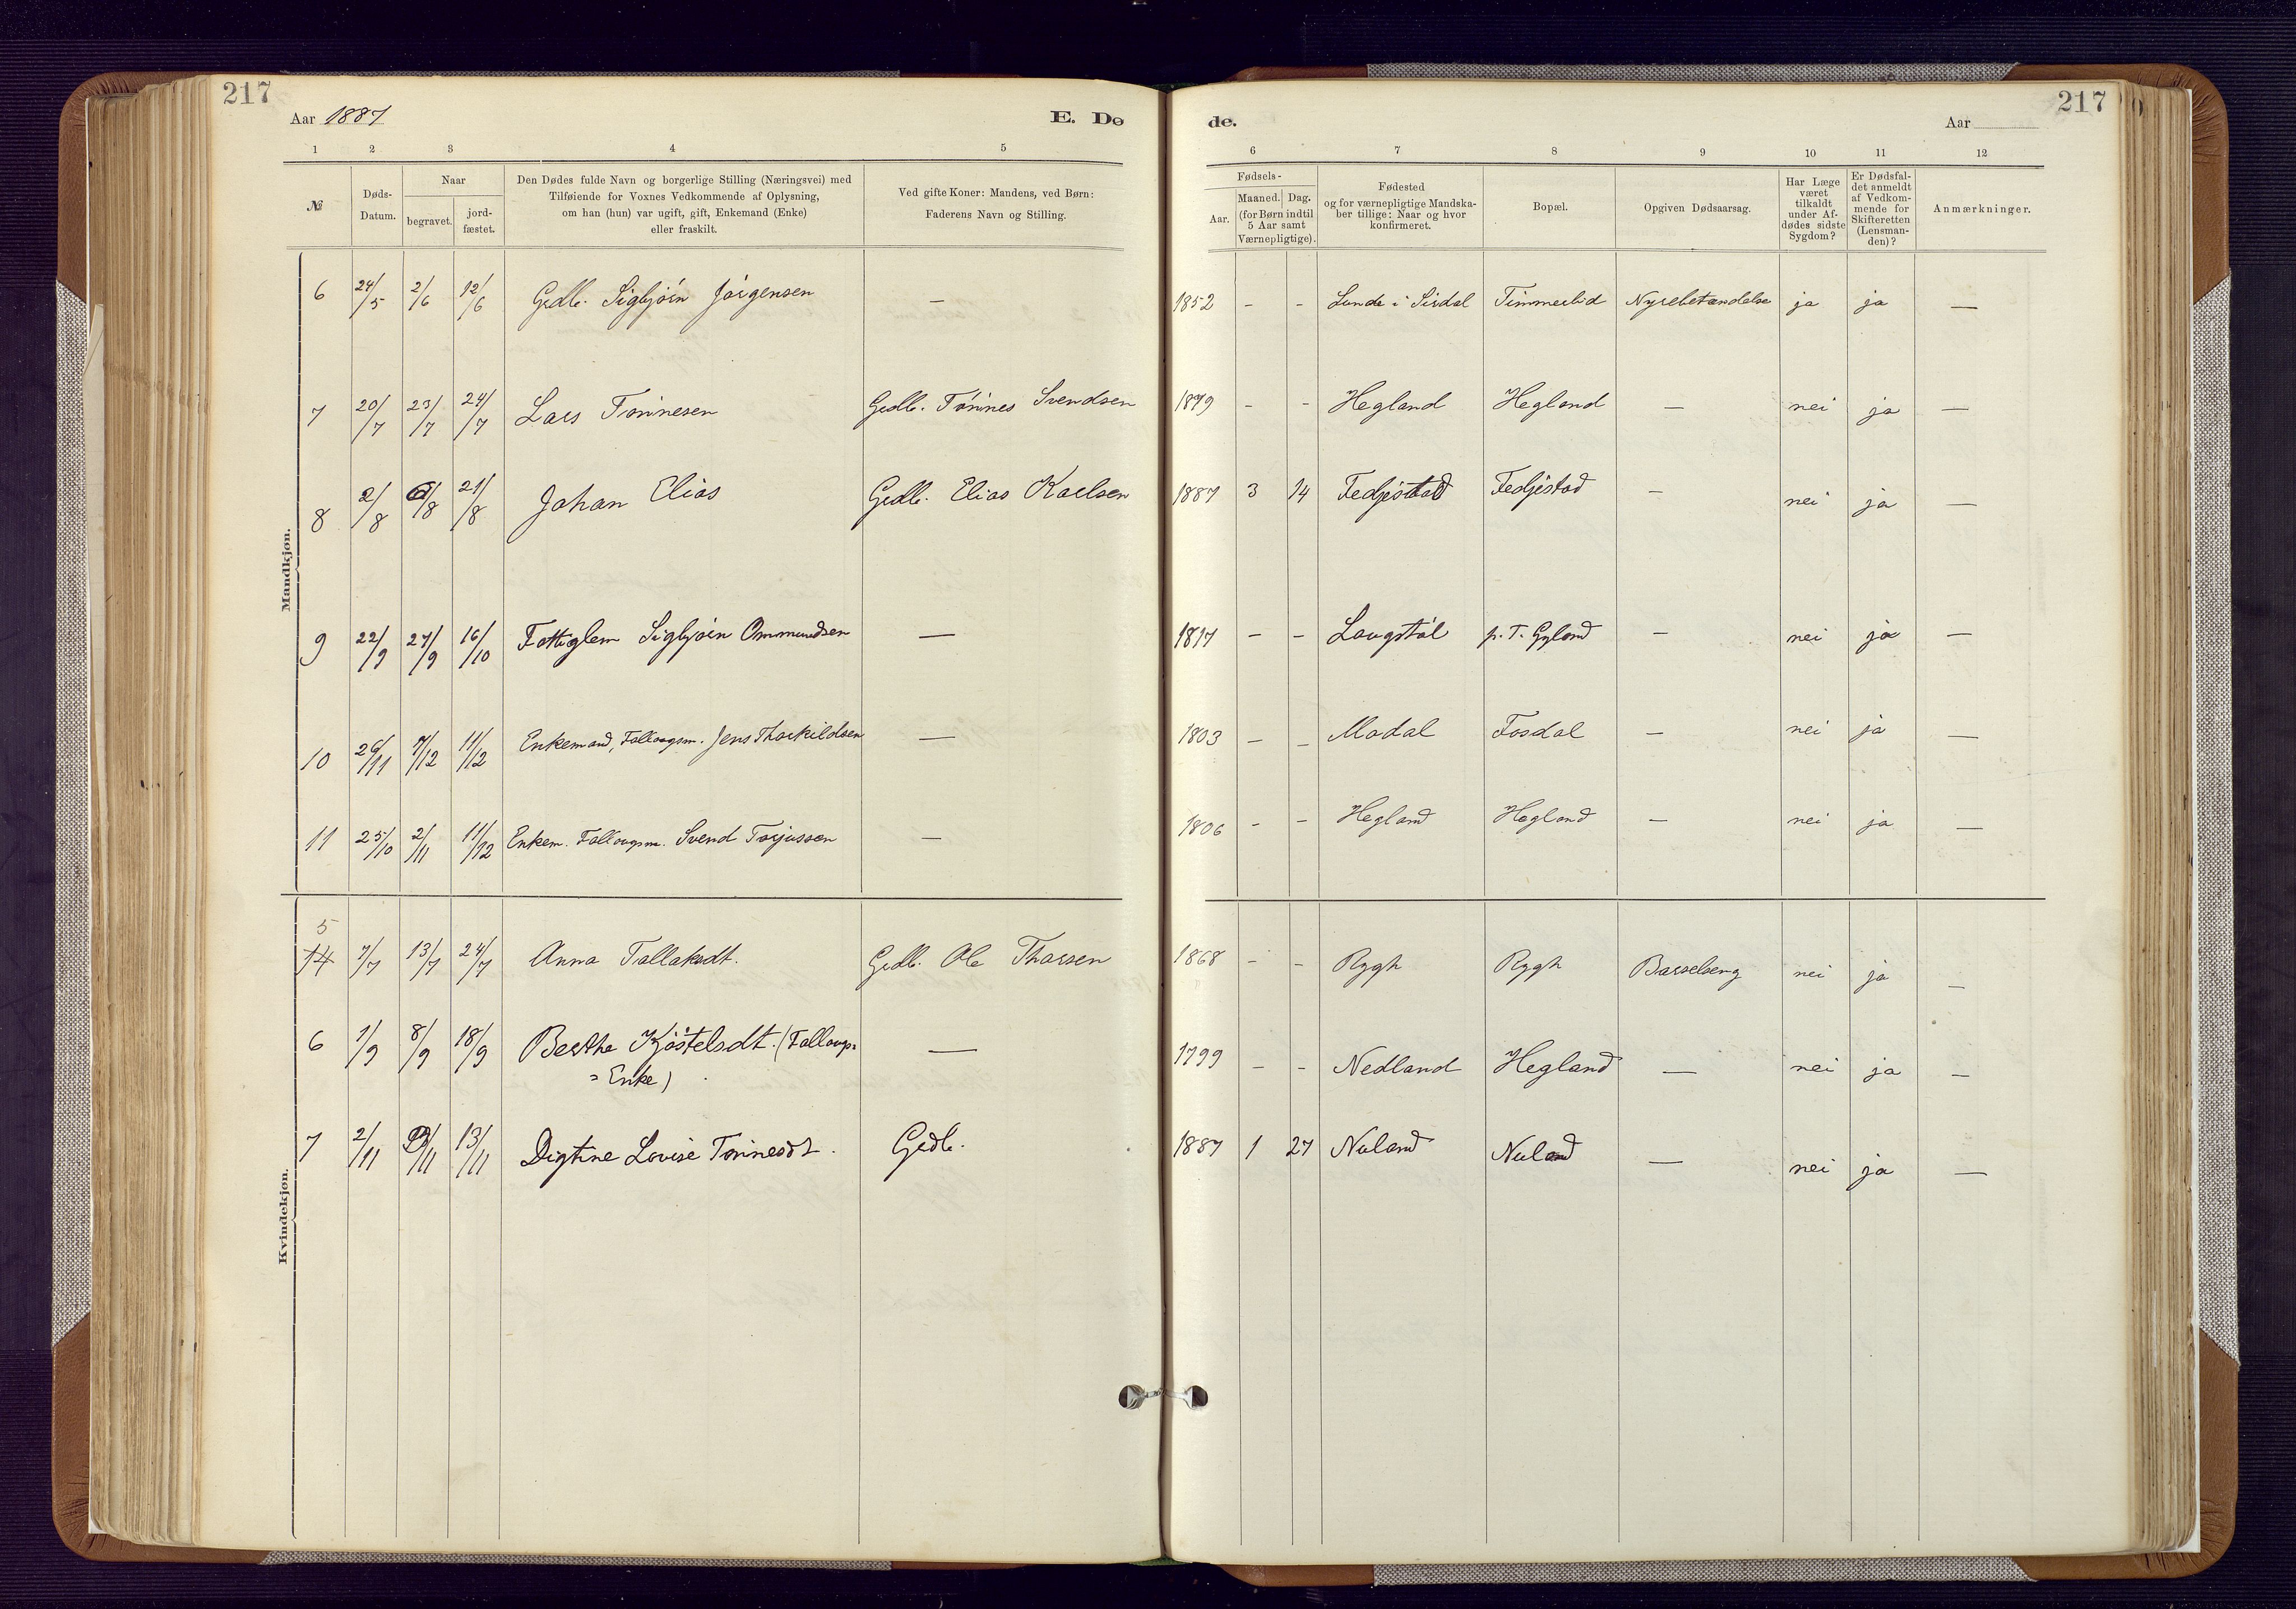 217
Aar 1887
E. Dø
de.
Aar
217
1 2 3 4 5
6 7 8 9 10 11 12
№
Døds-
Datum.
Naar
begravet.
jord-
fæstet.
Den Dødes fulde Navn og borgerlige Stilling (Næringsvei) med
Tilføiende for Voxnes Vedkommende af Oplysning,
om han (hun) var ugift, gift, Enkemand (Enke)
eller fraskilt.
Ved gifte Koner: Mandens, ved Børn:
Faderens Navn og Stilling.
Fødsels-
Aar.
Maaned. Dag.
(for Børn indtil
5 Aar samt
Værnepligtige).
Fødested
og for værnepligtige Mandska-
ber tillige: Naar og hvor
konfirmeret.
Bopæl.
Opgiven Dødsaarsag.
Har Læge
været
tilkaldt
under Af-
dødes sidste
Sygdom?
Er Dødsfal-
det anmeldt
af Vedkom-
mende for
Skifteretten
(Lensman-
den)?
Anmærkninger.
Mandkjøn.
6 24/5 2/6 12/6 Gidb. Sigbjøin Jørgensen — 1852 - - Lunde i Sirdal Timmerlid Nyrebetændelse ja ja —
7 20/7 23/7 24/7 Lars Tønnesen Gidb. Tønnes Svendsen 1879 - - Hegland Hegland — nei ja —
8 2/8 6/8 21/8 Johan Elias Gidb. Elias Karlsen 1887 3 14 Fedjestad Fedjestad - nei ja —
9 22/9 27/9 16/10 Fattiglem Sigbjøin Ommundsen — 1817 - - Laugstøl p. T. Gyland — nei ja —
10 26/11 7/12 11/12 Enkemand, Follaugsm. Jens Thorkildsen — 1803 - - Modal Fosdal — nei ja —
11 25/10 2/11 11/12 Enkem. Follaugsm. Svend Torjussen — 1806 - - Hegland Hegland — nei ja —
Kvindekjøn.
5
14 7/7 13/7 24/7 Anna Tallaksdt. Gidb. Ole Thorsen 1868 - - Rygh Rygh Barselseng nei ja -
6 1/9 8/9 18/9 Berthe Kjøstelsdt. (Follaugs=
=Enke) — 1799 - - Nedland Hegland — nei ja —
7 2/11 /11 13/11 Digtine Lovise Tønnesdt. Gidb. 1887 1 27 Nuland Nuland — nei ja —